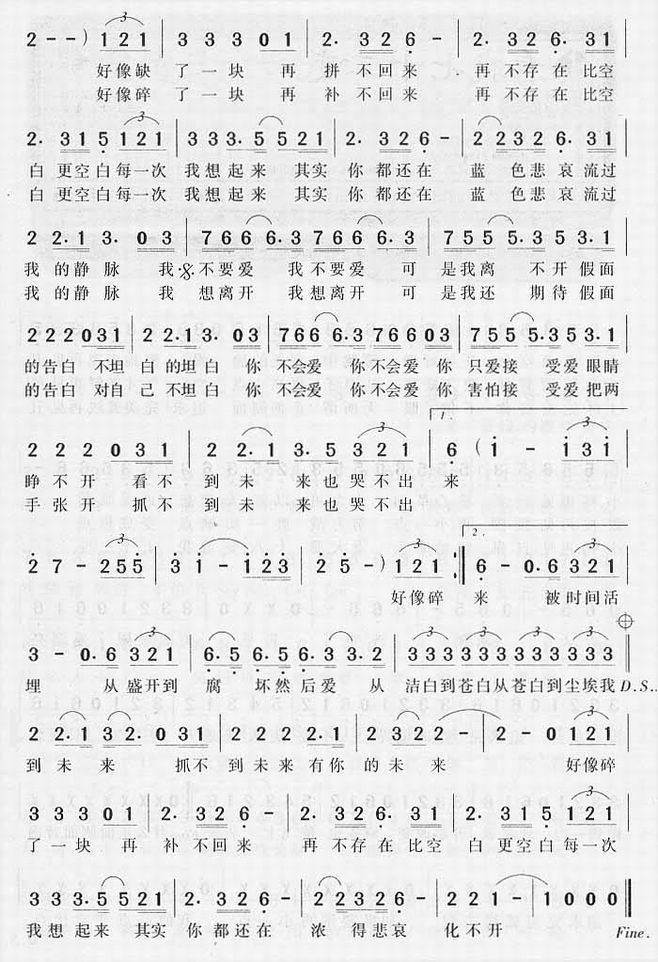 2 - - ) 1 2 1 | 3 3 3 0 1 | 2. 3 2 6 - | 2. 3 2 6. 3 1
好像缺 了一块 再 拼不回来 再不存在比空
好像碎 了一块 再 补不回来 再不存在比空
2. 3 1 5 1 2 1 | 3 3 3. 5 5 2 1 | 2. 3 2 6 - | 2 2 3 2 6. 3 1
白更空白每一次 我想起来 其实 你都还在 蓝色悲哀流过
白更空白每一次 我想起来 其实 你都还在 蓝色悲哀流过
2 2. 1 3. 0 3 | 7 6 6 6. 3 7 6 6 6. 3 | 7 5 5 5. 3 5 3. 1
我的静脉 我 不要爱 我不要爱 可 是我离 不开假面
我的静脉 我 想离开 我想离开 可 是我还 期待假面
2 2 2 0 3 1 | 2 2. 1 3. 0 3 | 7 6 6 6. 3 7 6 6 0 3 | 7 5 5 5. 3 5 3. 1
的告白 不坦 白的坦白 你 不会爱 你不会爱 你 只爱接 受爱眼睛
的告白 对自 己不坦白 你 不会爱 你不会爱 你 害怕接 受爱把两
1.
2 2 2 0 3 1 | 2 2. 1 3. 5 3 2 1 | 6 ( i - i 3 i
睁不开 看不 到未 来也哭不出 来
手张开 抓不 到未 来也哭不出
2 7 - 2 5 5 | 3 1 - 1 2 3 | 2 5 - ) 1 2 1 :| 2. 6 - 0. 6 3 2 1
好像碎 来 被时间活
3 - 0. 6 3 2 1 | 6. 5 6. 5 6. 3 3. 2 | 3 3 3 3 3 3 3 3 3 3 3 3
埋 从盛开到 腐 坏然后爱 从 洁白到苍白从苍白到尘埃我 D.S.
2 2. 1 3 2. 0 3 1 | 2 2. 1 3. 2 1 | 2 2 3 2 2 - | 2 - 0 1 2 1
到未来 抓不 到未来有你 的未来 好像碎
3 3 3 0 1 | 2. 3 2 6 - | 2. 3 2 6. 3 1 | 2. 3 1 5 1 2 1
了一块 再 补不回来 再不存在比空 白更空白每一次
3 3 3. 5 5 2 1 | 2. 3 2 6 - | 2 2 3 2 6 - | 2 2 1 - 1 0 0 0
我想起来 其实 你都还在 浓得悲哀 化不开 Fine.